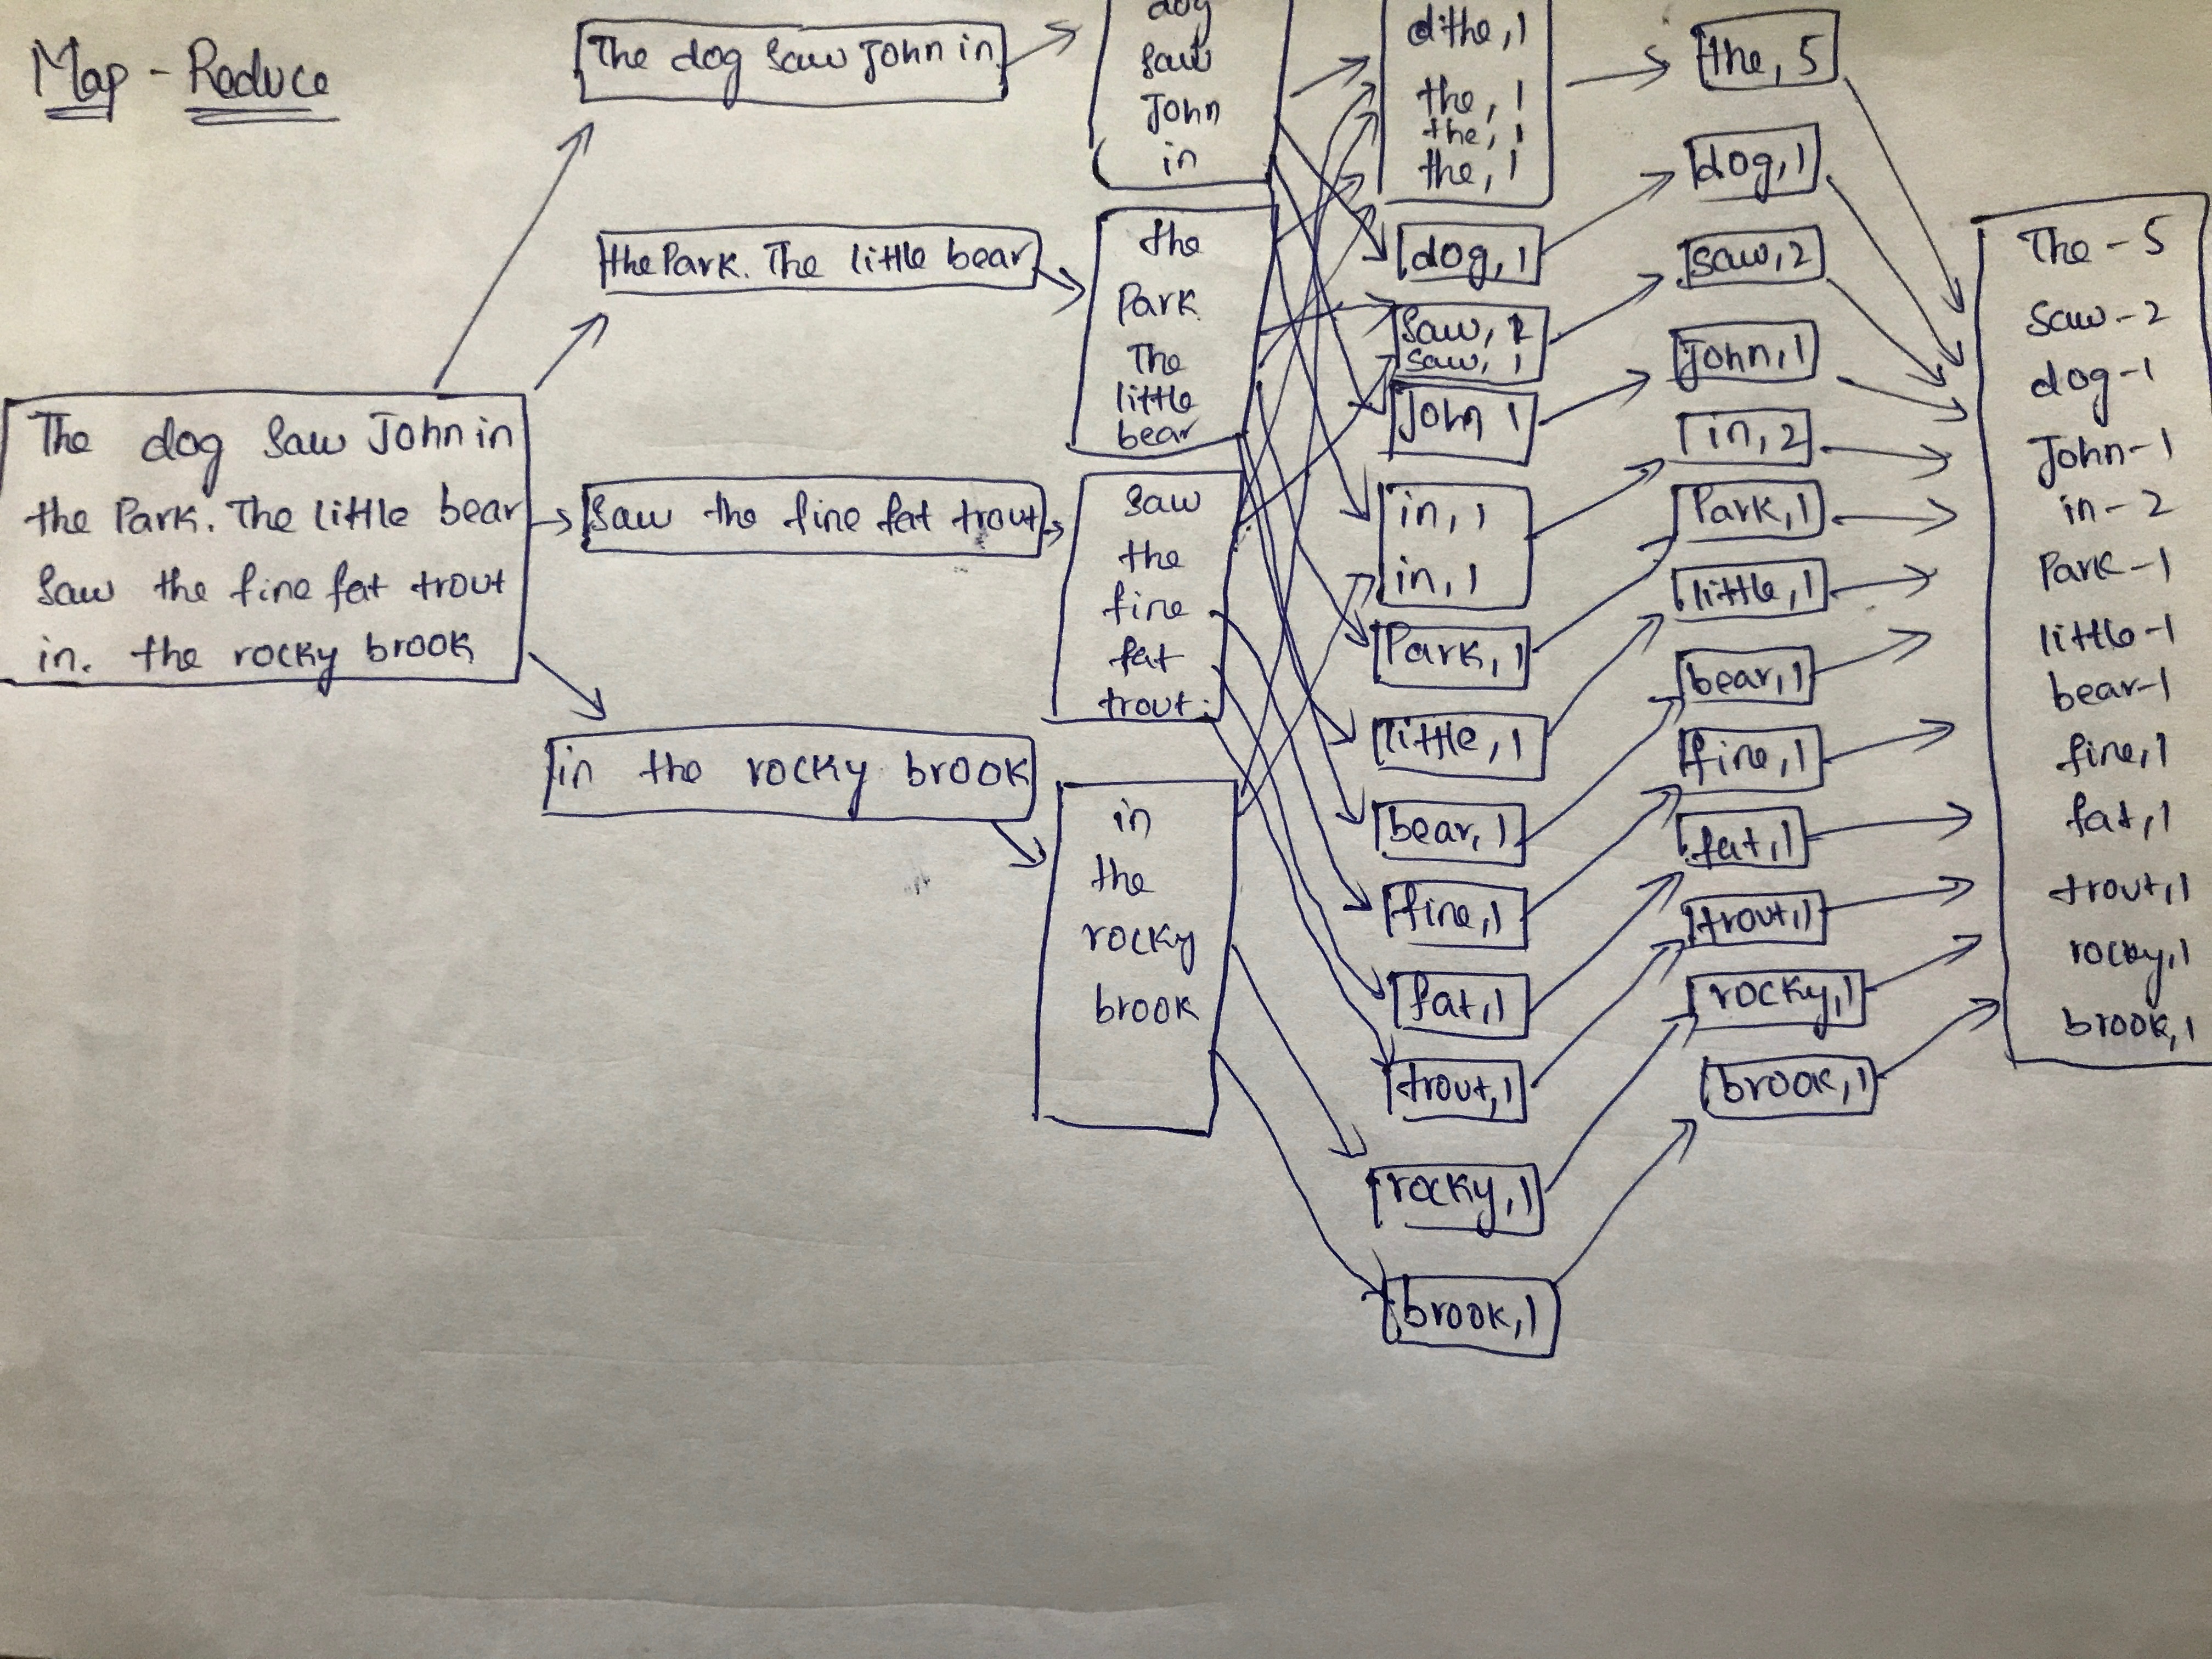 Map - Reduce
The dog saw John in
the Park. The little bear
saw the fine fat trout
in. the rocky brook
The dog saw John in
the Park. The little bear
saw the fine fat trout
in the rocky brook
dog
saw
John
in
the
Park
The
little
bear
saw
the
fine
fat
trout.
in
the
rocky
brook
the, 1
the, 1
the, 1
the, 1
dog, 1
saw, 1
saw, 1
John 1
in, 1
in, 1
Park, 1
little, 1
bear, 1
fine, 1
fat, 1
trout, 1
rocky, 1
brook, 1
the, 5
dog, 1
saw, 2
John, 1
in, 2
Park, 1
little, 1
bear, 1
fine, 1
fat, 1
trout, 1
rocky, 1
brook, 1
The - 5
Saw - 2
dog - 1
John - 1
in - 2
Park - 1
little - 1
bear - 1
fine, 1
fat, 1
trout, 1
rocky, 1
brook, 1